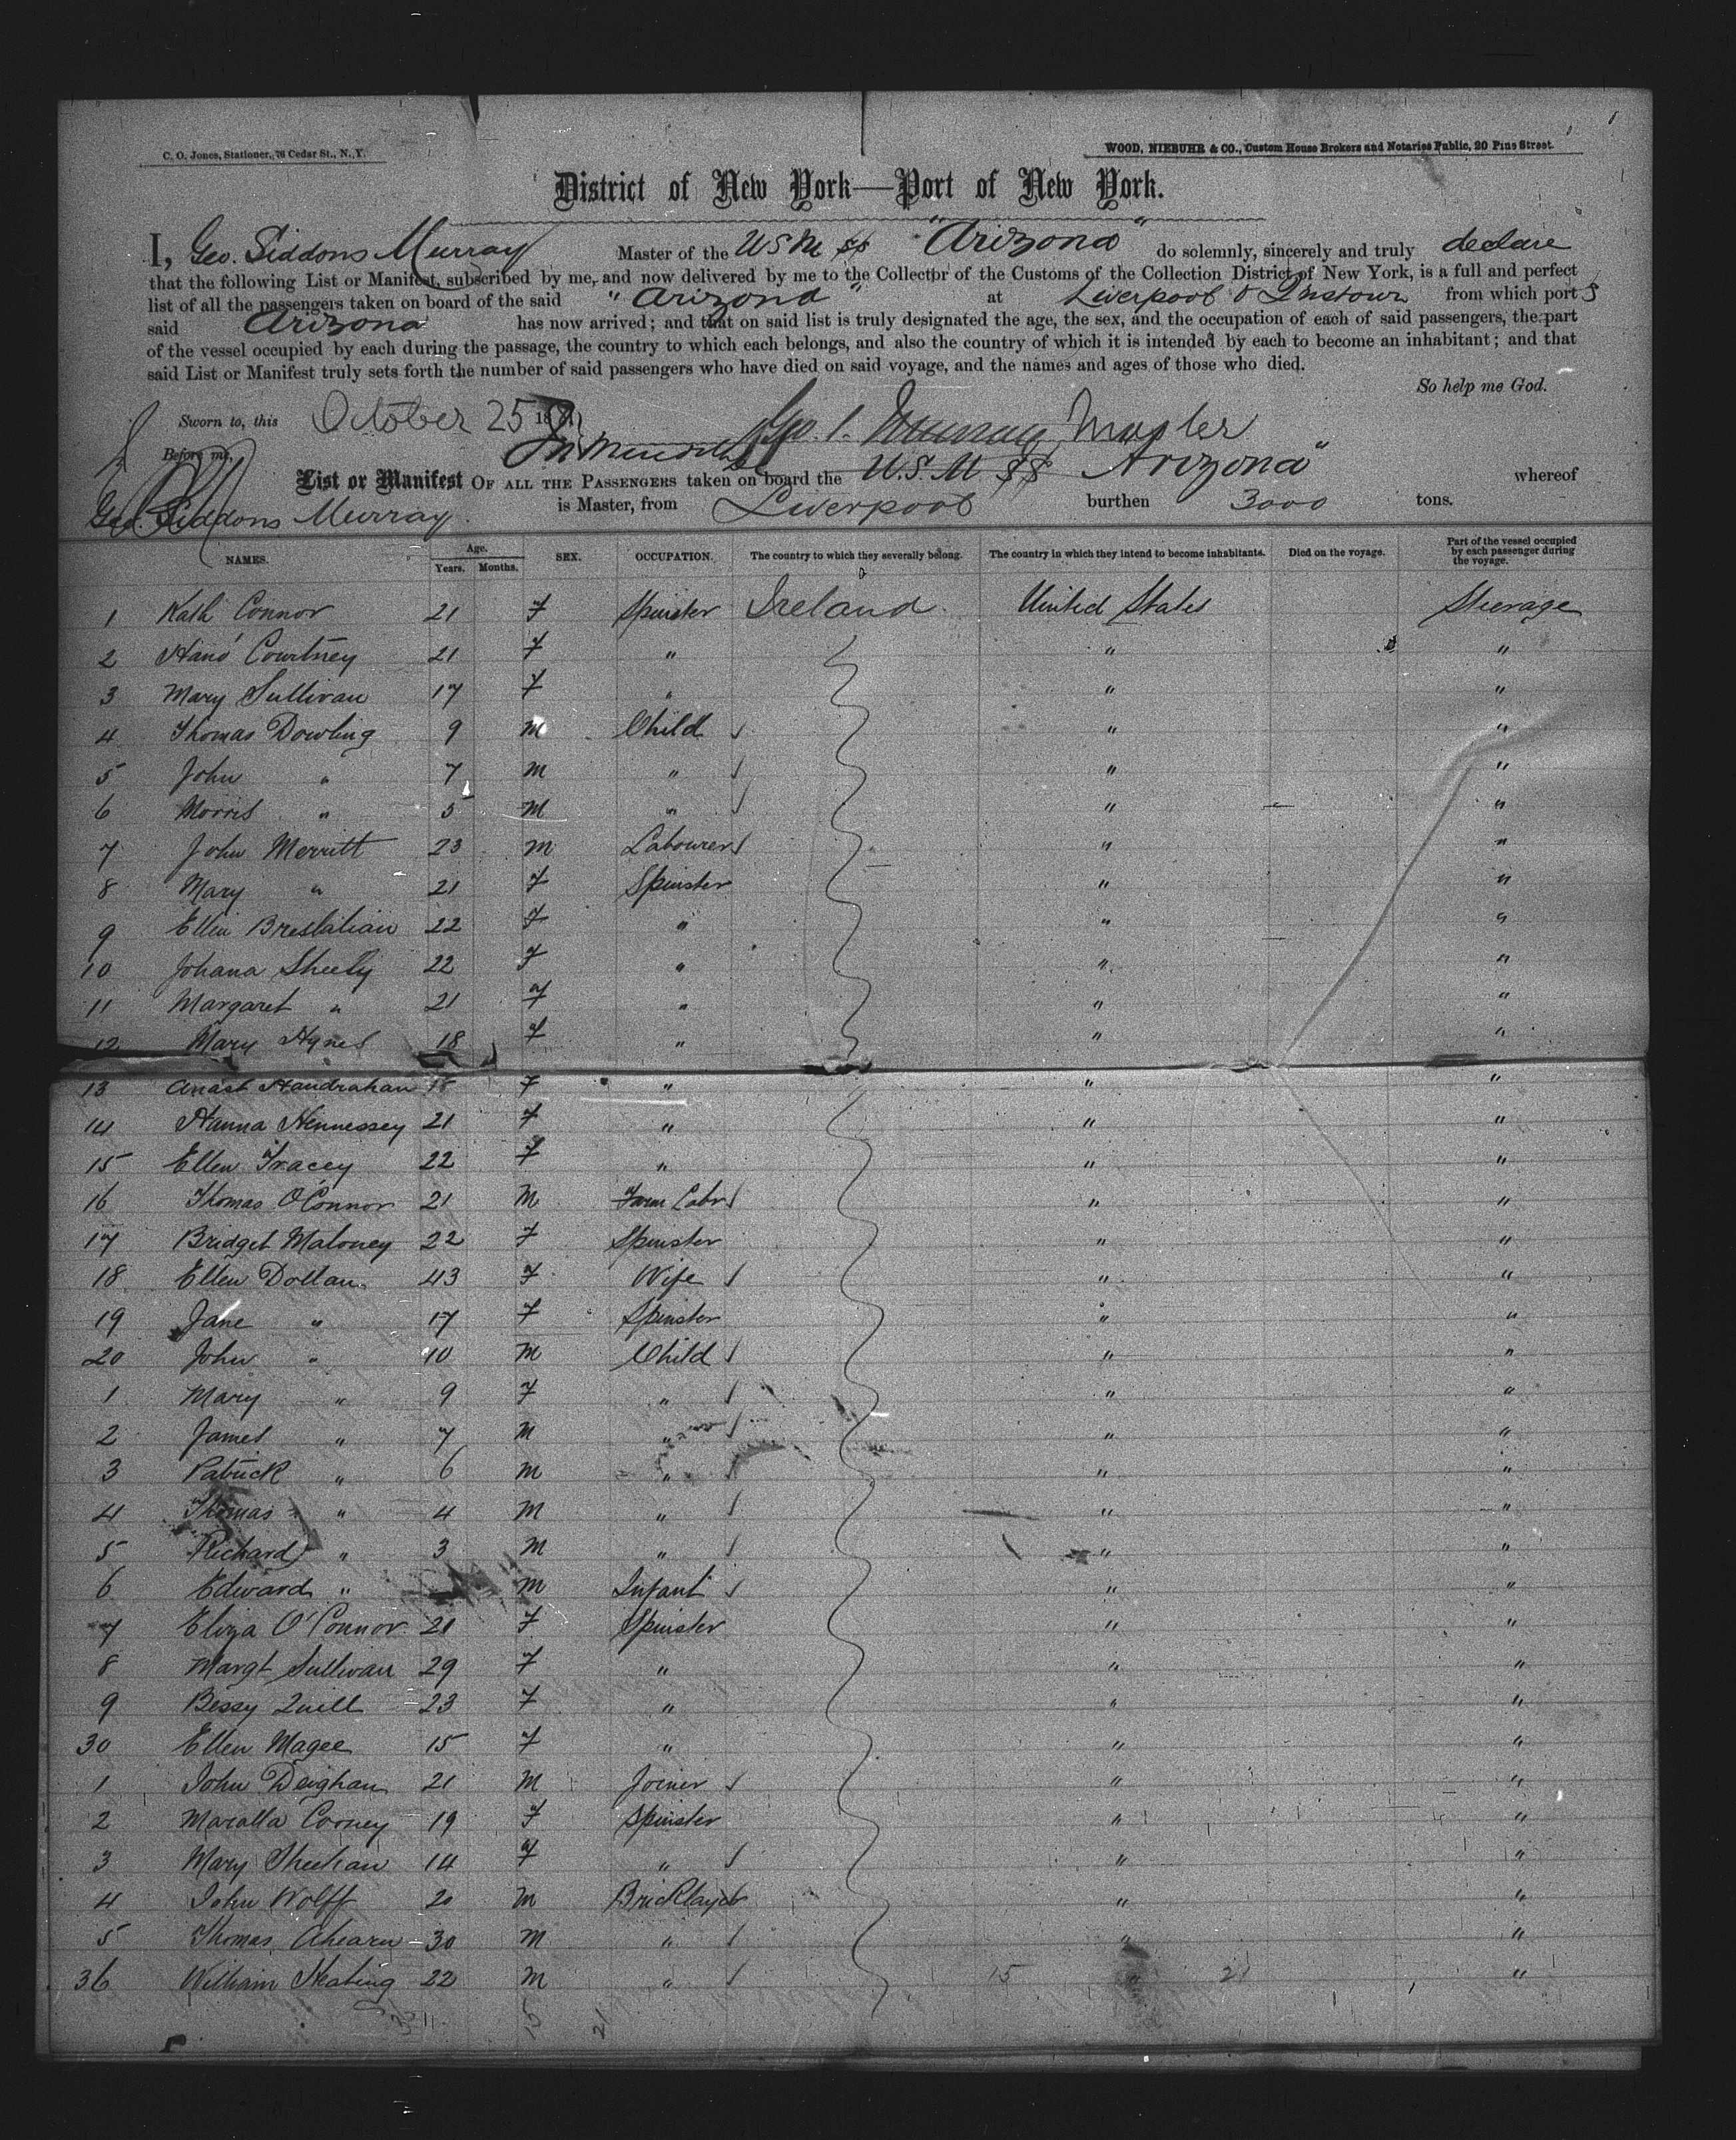 C. O. Jones, Stationer, 76 Cedar St., N. Y.
WOOD, NIEBUHR & CO., Custom House Brokers and Notaries Public, 20 Pine Street.
District of New York—Port of New York.
I, Geo. Siddons Murray Master of the U S M SS "Arizona" do solemnly, sincerely and truly declare
that the following List or Manifest, subscribed by me, and now delivered by me to the Collector of the Customs of the Collection District of New York, is a full and perfect
list of all the passengers taken on board of the said "Arizona" at Liverpool & Qnstown from which ports
said Arizona has now arrived; and that on said list is truly designated the age, the sex, and the occupation of each of said passengers, the part
of the vessel occupied by each during the passage, the country to which each belongs, and also the country of which it is intended by each to become an inhabitant; and that
said List or Manifest truly sets forth the number of said passengers who have died on said voyage, and the names and ages of those who died.
So help me God.
Sworn to, this October 25 18
Geo. S. Murray Master
Before me,
List or Manifest OF ALL THE PASSENGERS taken on board the U.S.M. SS Arizona" whereof
Geo. Siddons Murray is Master, from Liverpool burthen 3000 tons.
NAMES. Age. Years. Months. SEX. OCCUPATION. The country to which they severally belong. The country in which they intend to become inhabitants. Died on the voyage. Part of the vessel occupied by each passenger during the voyage.
1 Kath Connor 21 F Spinster Ireland United States Steerage
2 Hano Courtney 21 F " " "
3 Mary Sullivan 17 F " " "
4 Thomas Dowling 9 M Child " "
5 John " 7 M " " "
6 Morris " 5 M " " "
7 John Merritt 23 M Labourer " "
8 Mary " 21 F Spinster " "
9 Ellen 22 F " " "
10 Johana Sheehy 22 F " " "
11 Margaret " 21 F " " "
12 Mary Hynes 18 F " " "
13 Anast Handrahan 18 F " " "
14 Hanna Hennessey 21 F " " "
15 Ellen Tracey 22 F " " "
16 Thomas O'Connor 21 M Farm Labr " "
17 Bridget Maloney 22 F Spinster " "
18 Ellen Dollan 43 F Wife " "
19 Jane " 17 F Spinster " "
20 John " 10 M Child " "
1 Mary " 9 F " " "
2 James " 7 M " " "
3 Patrick " 6 M " " "
4 Thomas " 4 M " " "
5 Richard " 3 M " " "
6 Edward " M Infant " "
7 Eliza O'Connor 21 F Spinster " "
8 Margt Sullivan 29 F " " "
9 Bessy Quill 23 F " " "
30 Ellen Magee 15 F " " "
1 John Deighan 21 M Joiner " "
2 Maralla Corney 19 F Spinster " "
3 Mary Sheehan 14 F " " "
4 John Wolff 20 M Bricklayer " "
5 Thomas Ahearn 30 M " " "
36 William Keating 22 M " 15 " 21 "
15 21